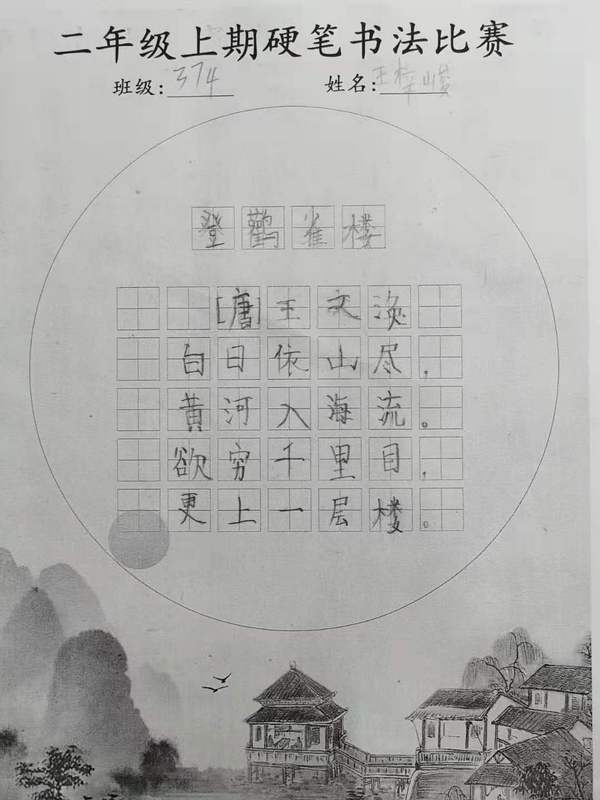 二年级上期硬笔书法比赛
班级:374 姓名:王梓峻
登鹳雀楼
[唐]王文涣
白日依山尽，
黄河入海流。
欲穷千里目，
更上一层楼。